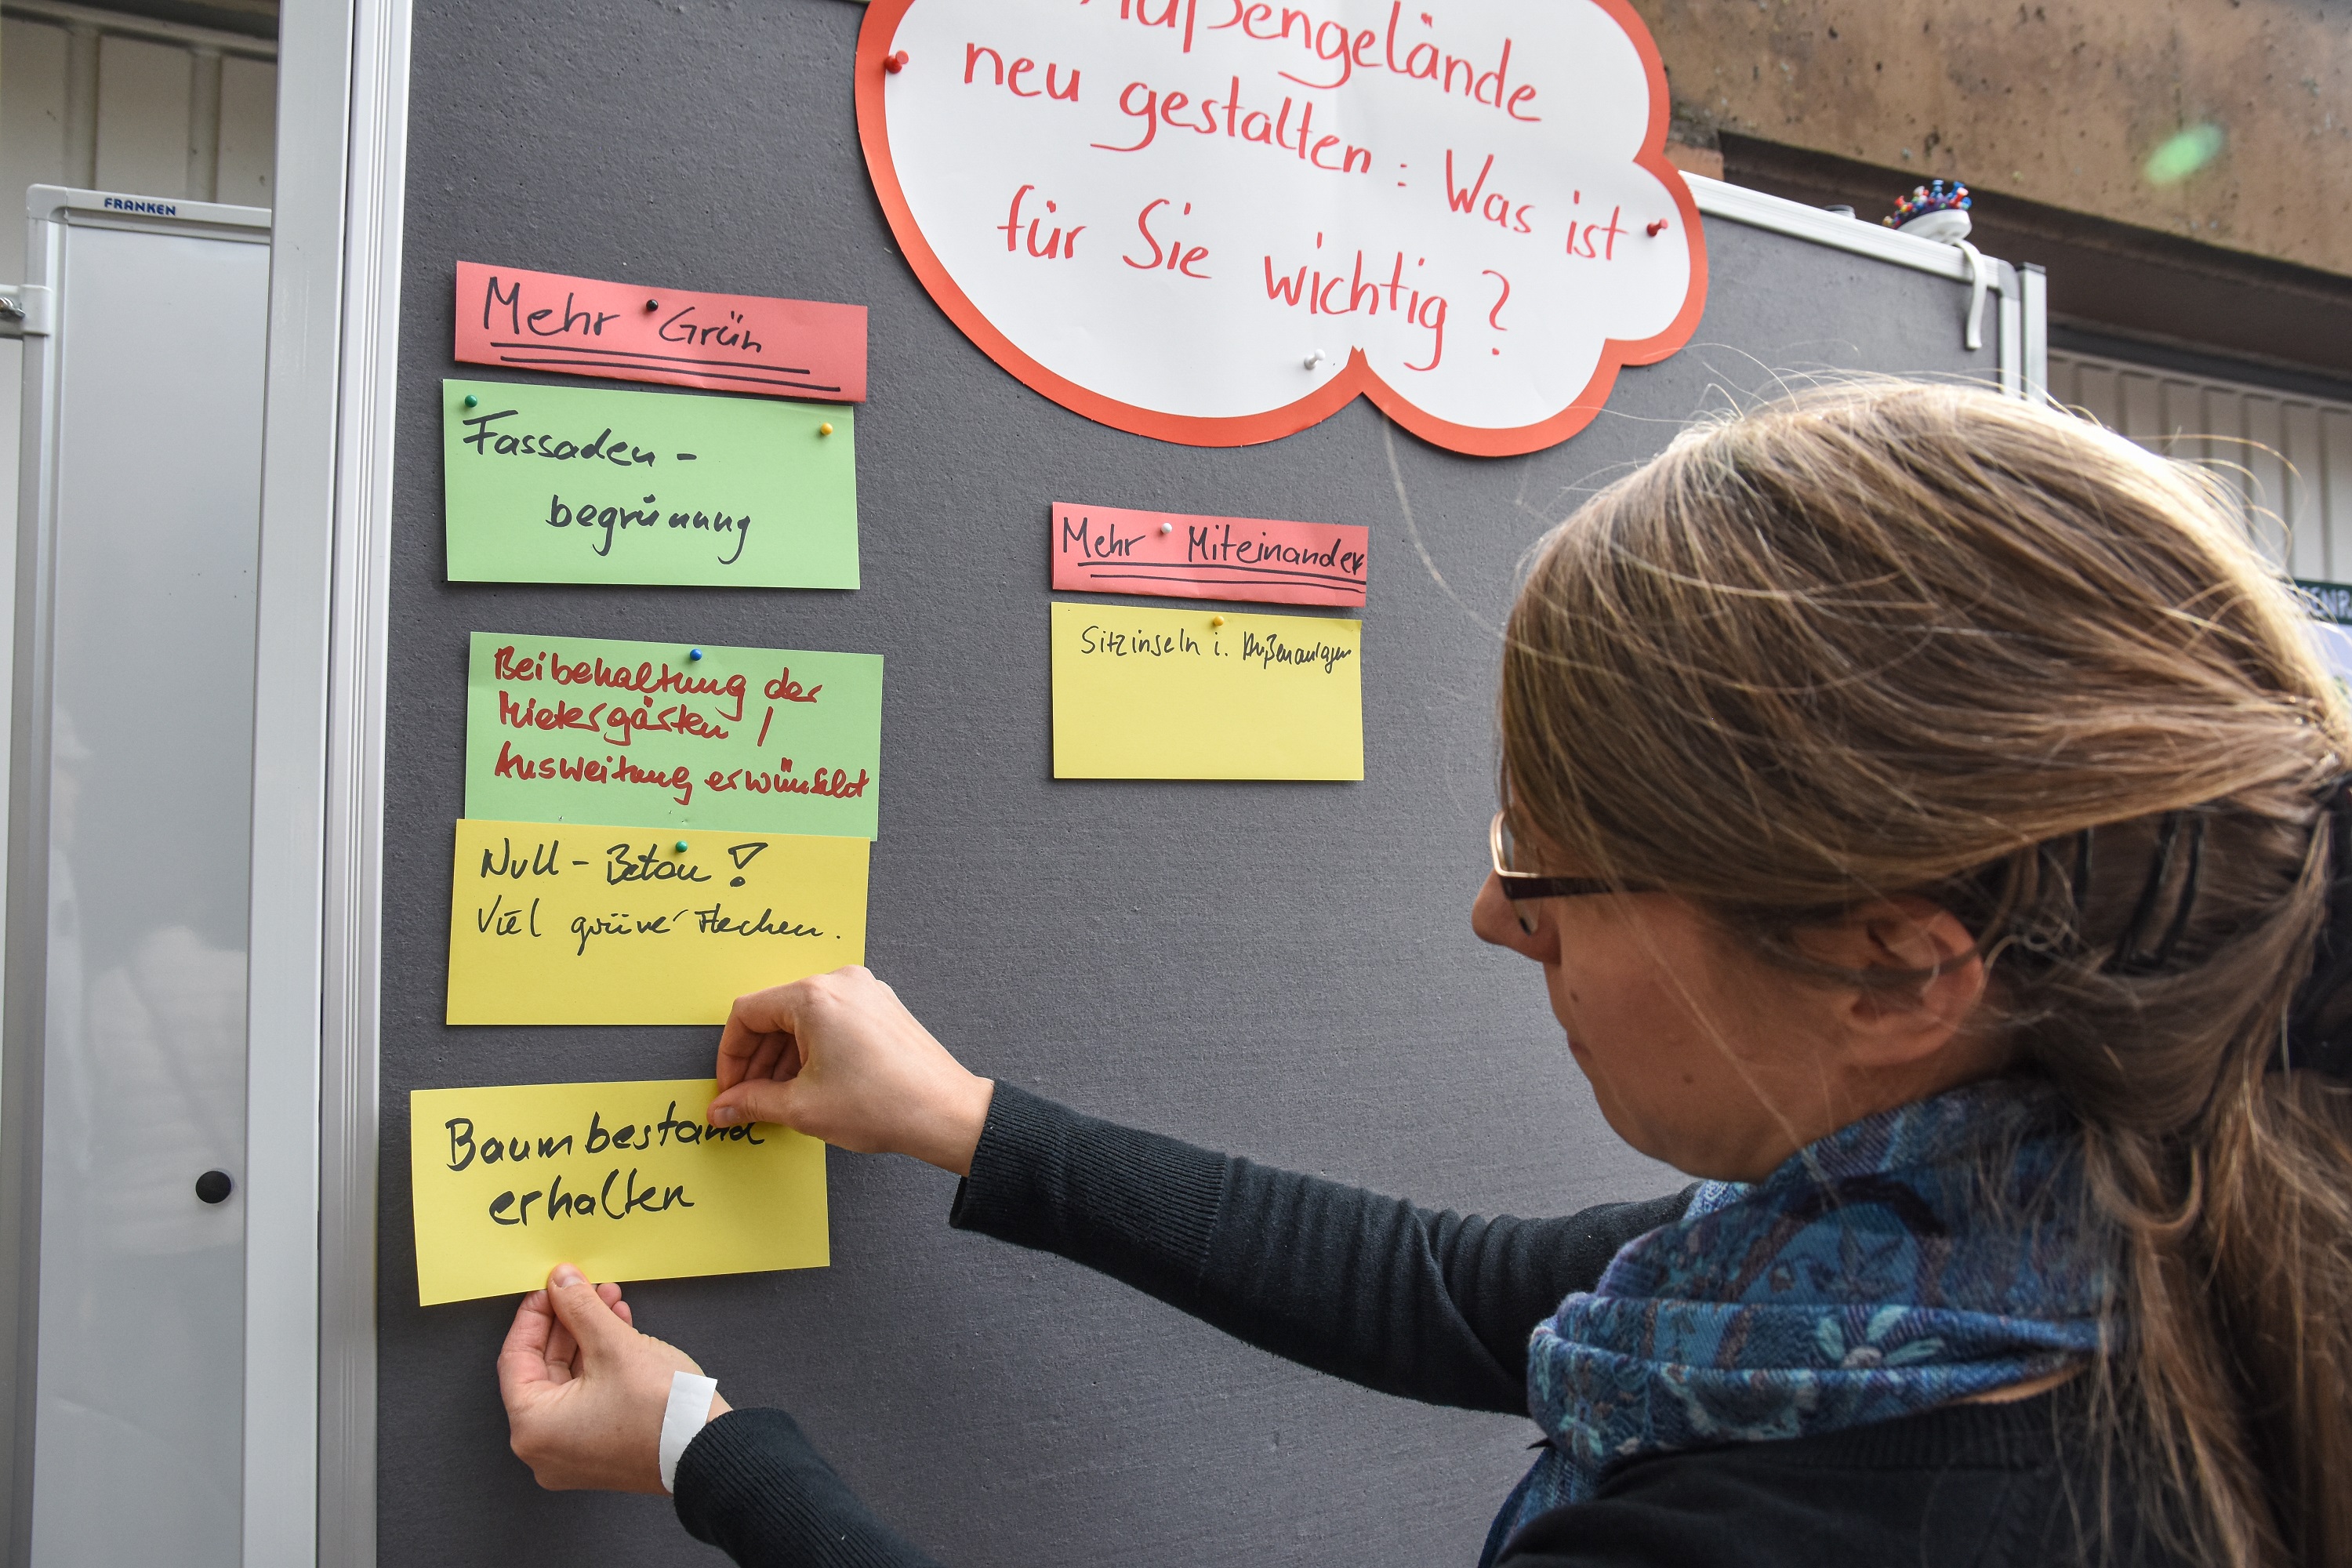 FRANKEN
Außengelände
neu gestalten: Was ist
für Sie wichtig?
Mehr Grün
Fassaden-
begrünung
Beibehaltung der
Mietergärten /
Ausweitung erwünscht
Null-Beton!
Viel grüne Flechen.
Baumbestand
erhalten
Mehr Miteinander
Sitzinseln i. Außenanlagen